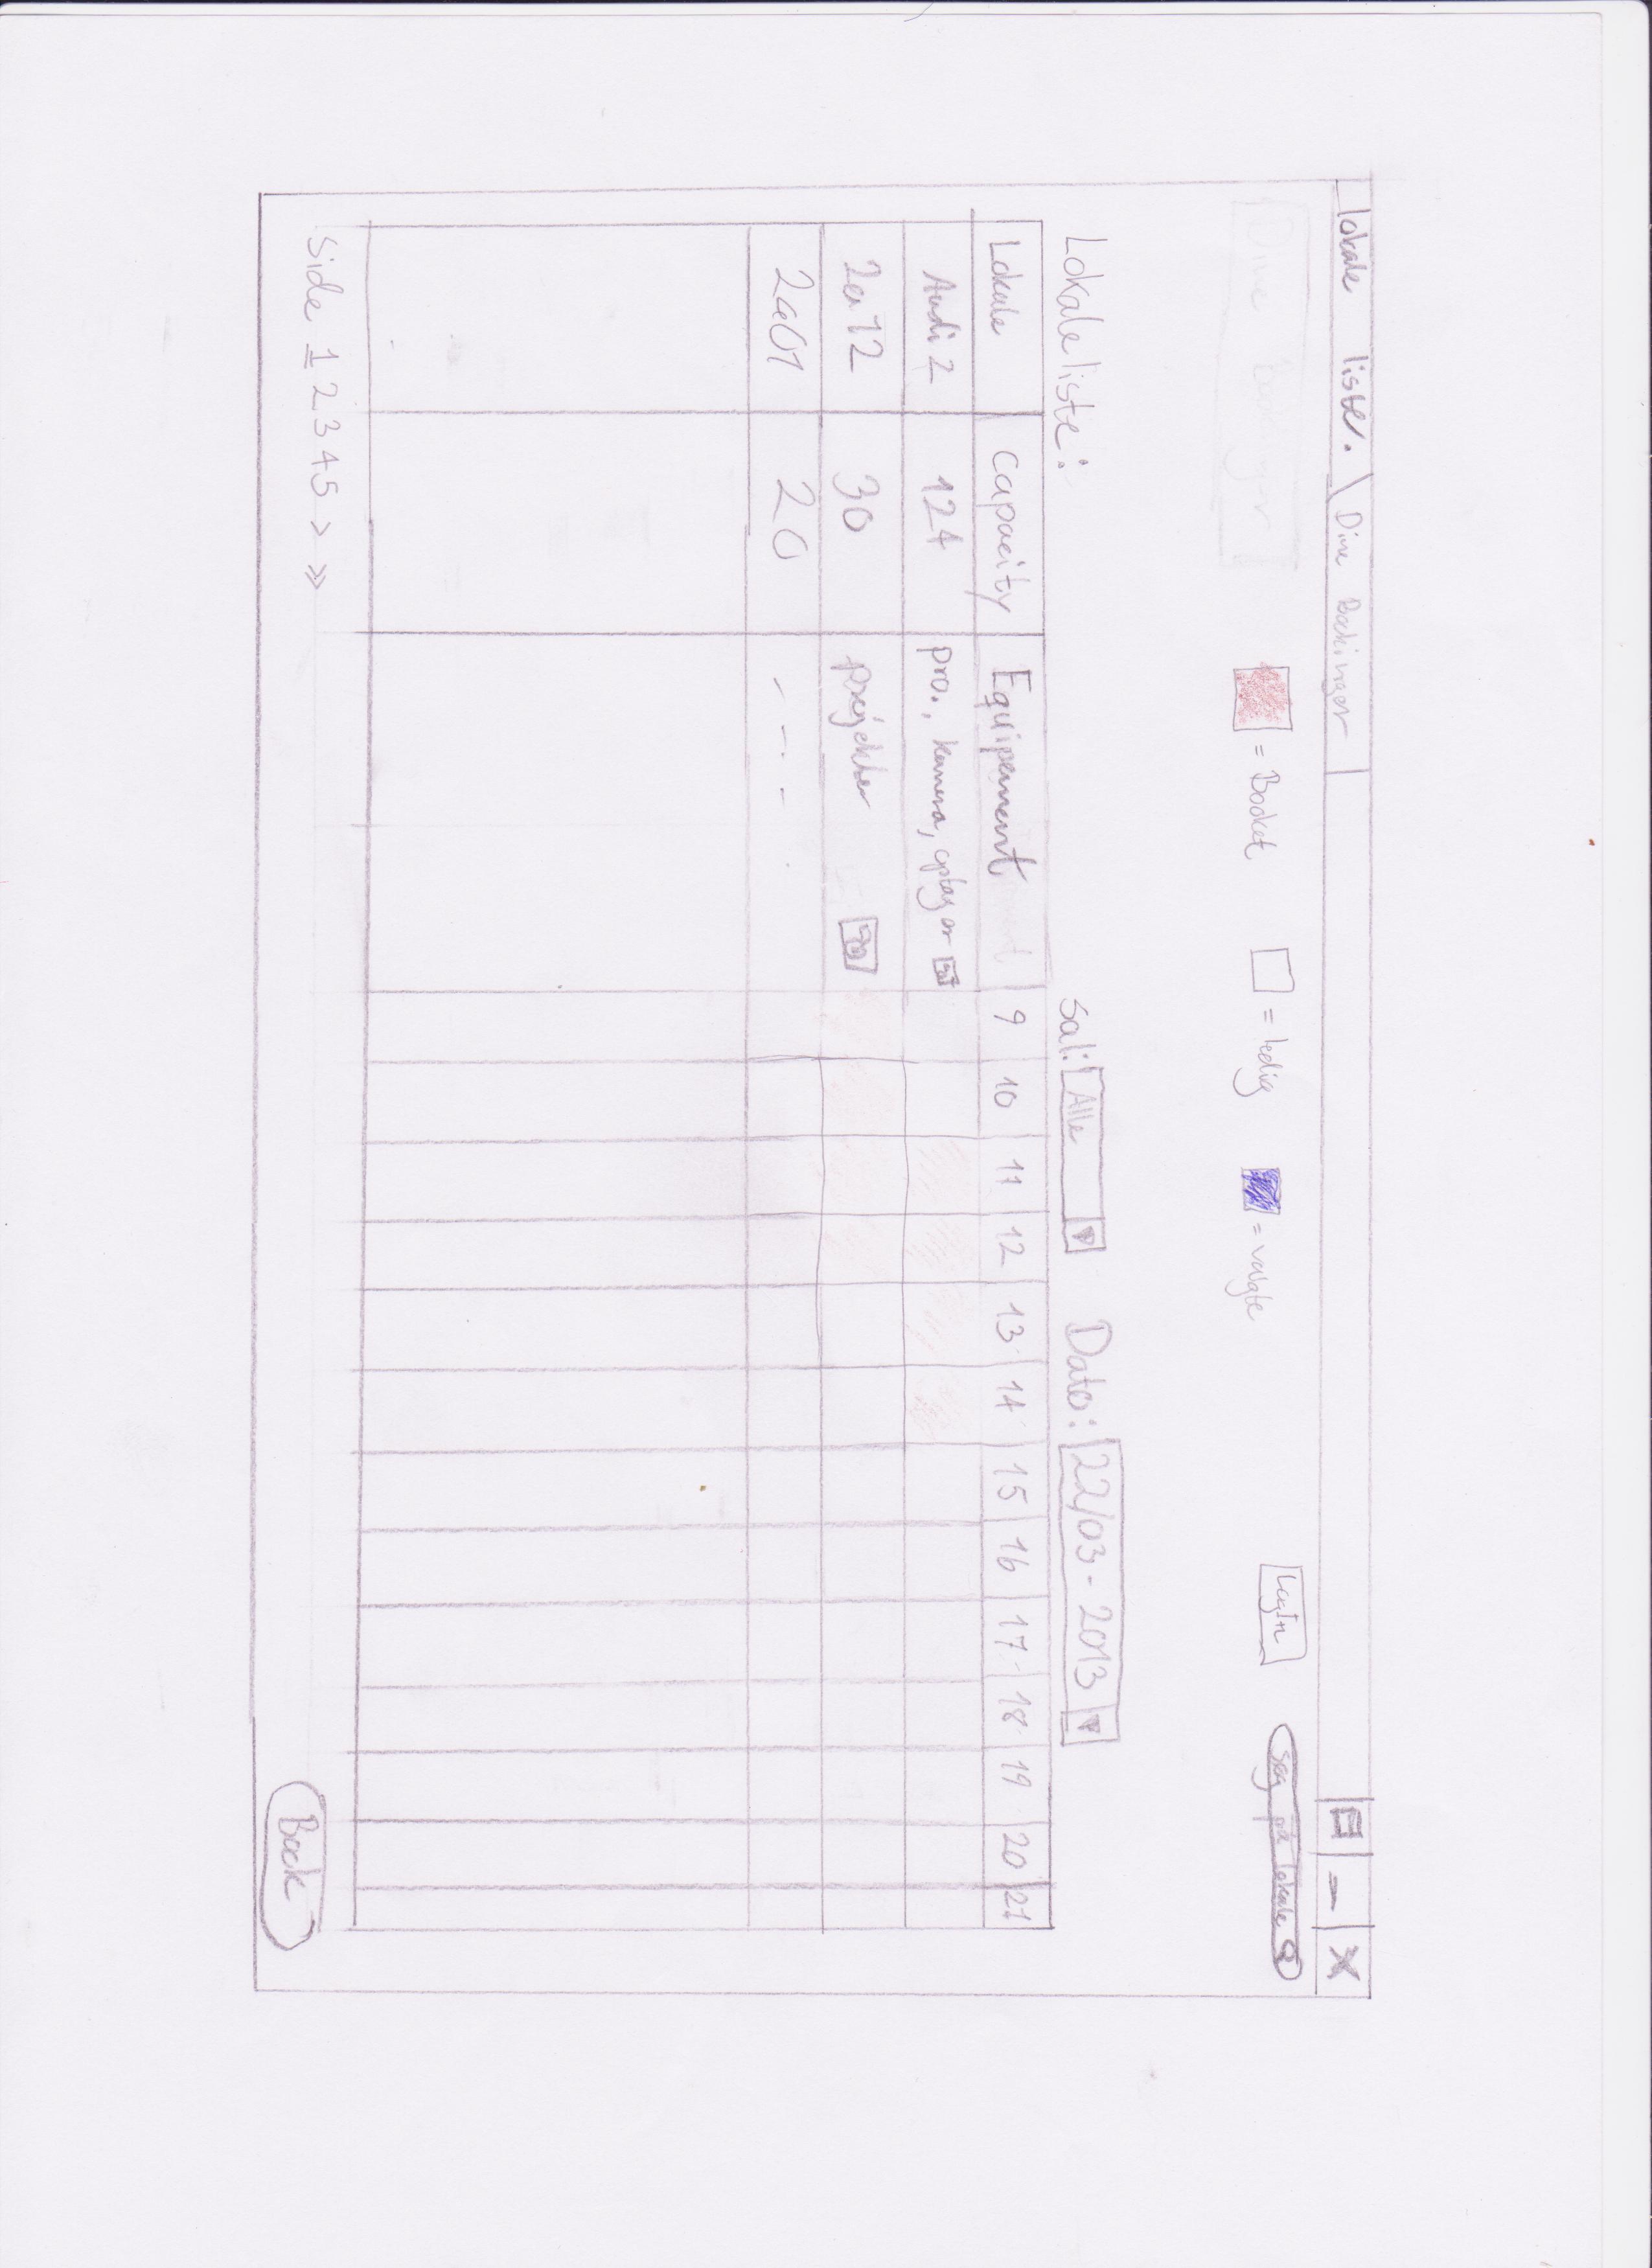 lokale liste. Dine Bookinger
Dine Bookinger
= Booket = ledig = valgte LogIn Søg på lokale
Lokale liste: Sal: Alle Dato: 22/03 - 2013
Lokale Capacity Equipement 9 10 11 12 13 14 15 16 17 18 19 20 21
Audi 2 124 pro., kamera,
30
20 - - -
Side 1 2 3 4 5 > >>
Book